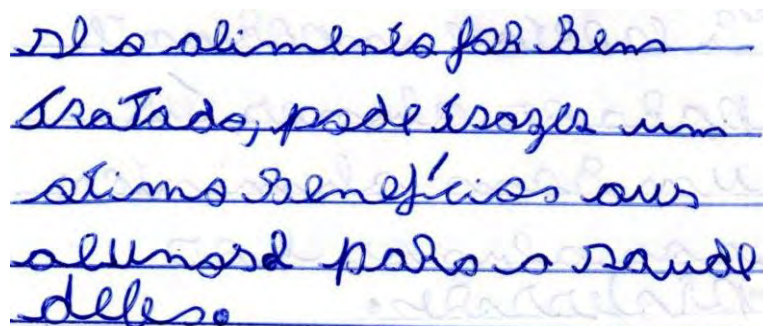 se o alimento for Bem
tratado, pode trazer um
otimo Benefícios aus
alunos e para a saude
deles.